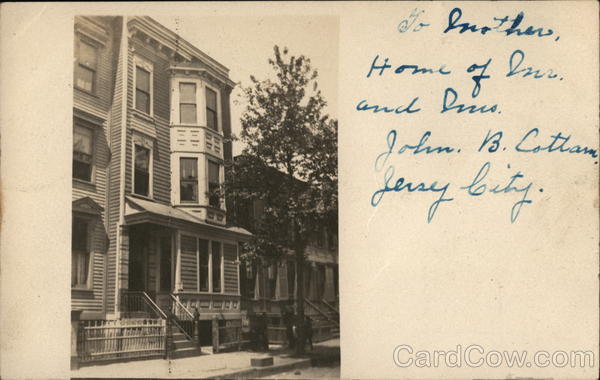 To Mother,
Home of Mr.
and Mrs.
John. B. Cottam,
Jersey City.
CardCow.com